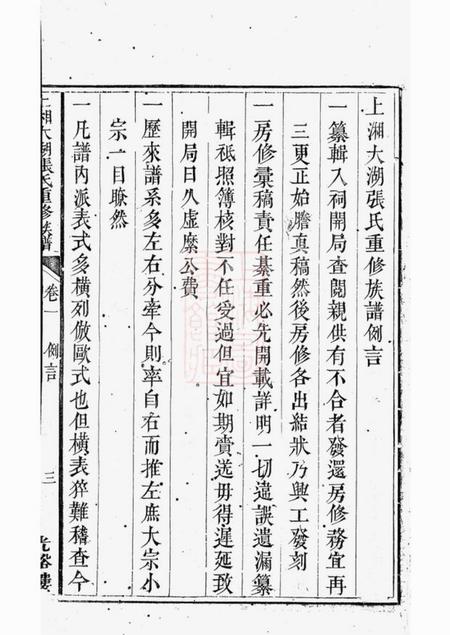 上湘大湖張氏重修族譜例言
一纂輯入祠開局查閱親供有不合者發還房修務宜再
三更正始謄真稿然後房修各出結狀乃興工發刻
一房修彙稿責任綦重必先開載詳明一切違誤遺漏纂
輯祇照簿核對不任受過但宜如期賷送毋得遲延致
開局日久虛縻公費
一歷來譜系多左右分牽今則率自右而推左庶大宗小
宗一目瞭然
一凡譜內派表式多橫列倣歐式也但橫表猝難稽查今
上湘大湖張氏重修族譜 卷一 例言 三 光裕樓